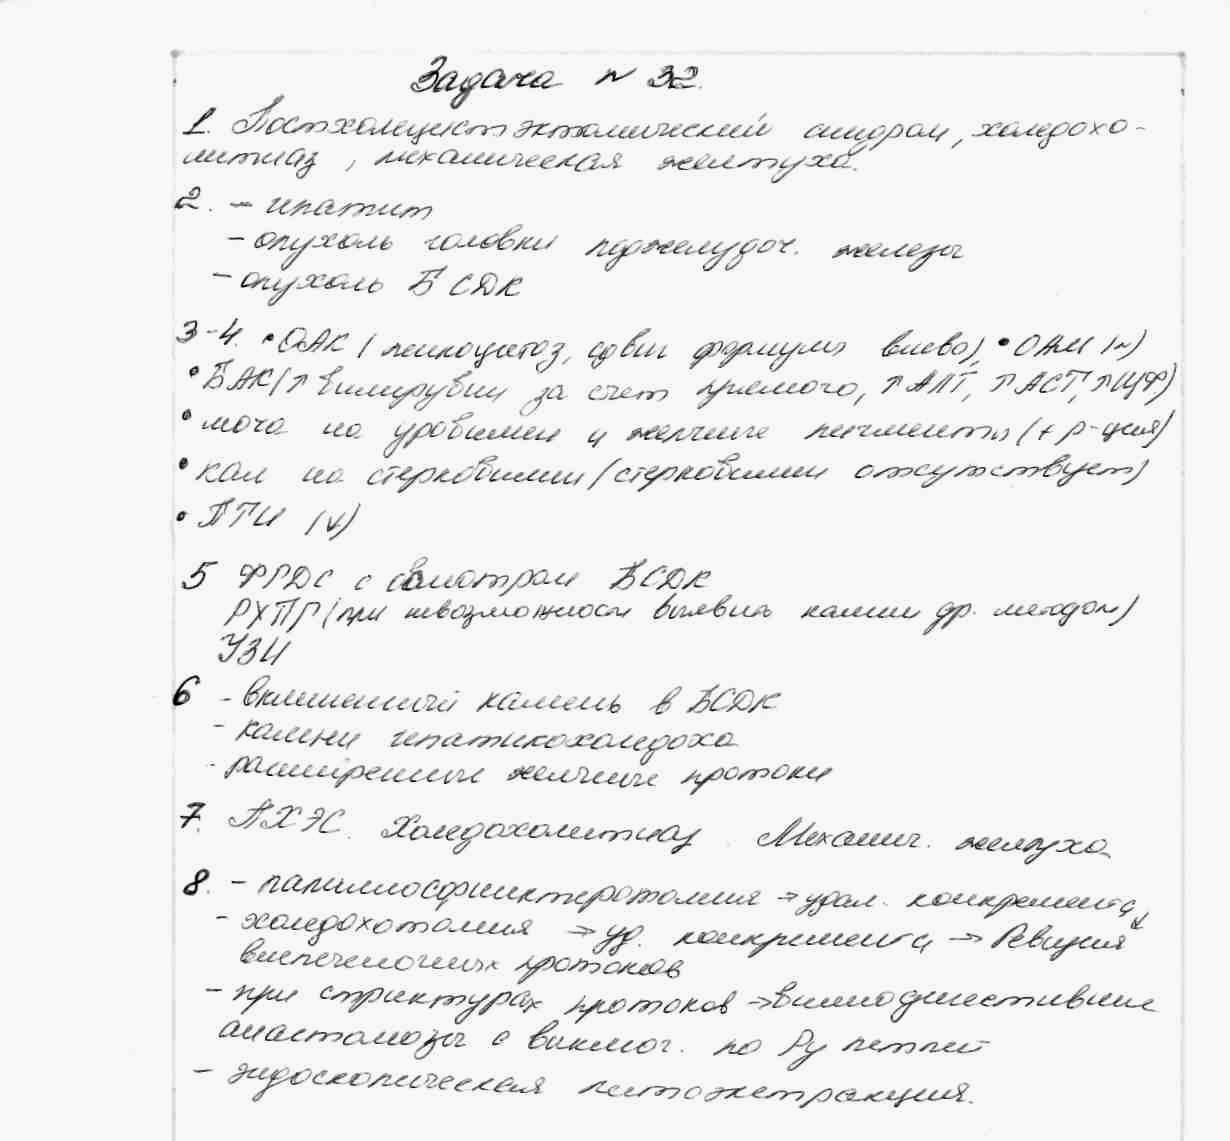 Задача N 32.
1. Постхолецистэктомический синдром, холедохо-
литиаз, механическая желтуха.
2. - гепатит
- опухоль головки поджелудоч. железы
- опухоль БСДК
3-4. • ОАК (лейкоцитоз, сдвиг формулы влево), • ОАМ (~)
• БАК (↑ билирубин за счет прямого, ↑ АЛТ, ↑ АСТ, ↑ ЩФ)
• моча на уробилин и желчные пигменты (+ р-ция)
• кал на стеркобилин (стеркобилин отсутствует)
• ПТИ (↓)
5 ФГДС с осмотром БСДК
РХПГ (при невозможности выявить камни др. методом)
УЗИ
6 - вклиненный камень в БСДК
- камни гепатикохоледоха
- расширенные желчные протоки
7. ПХЭС. Холедохолитиаз. Механич. желтуха
8. - папиллосфинктеротомия → удал. конкремента ↓
- холедохотомия → уд. конкремента → Ревизия
внепеченочных протоков
- при стриктурах протоков → билиодигестивные
анастомозы с выключ. по Ру петлей
- эндоскопическая литоэкстракция.